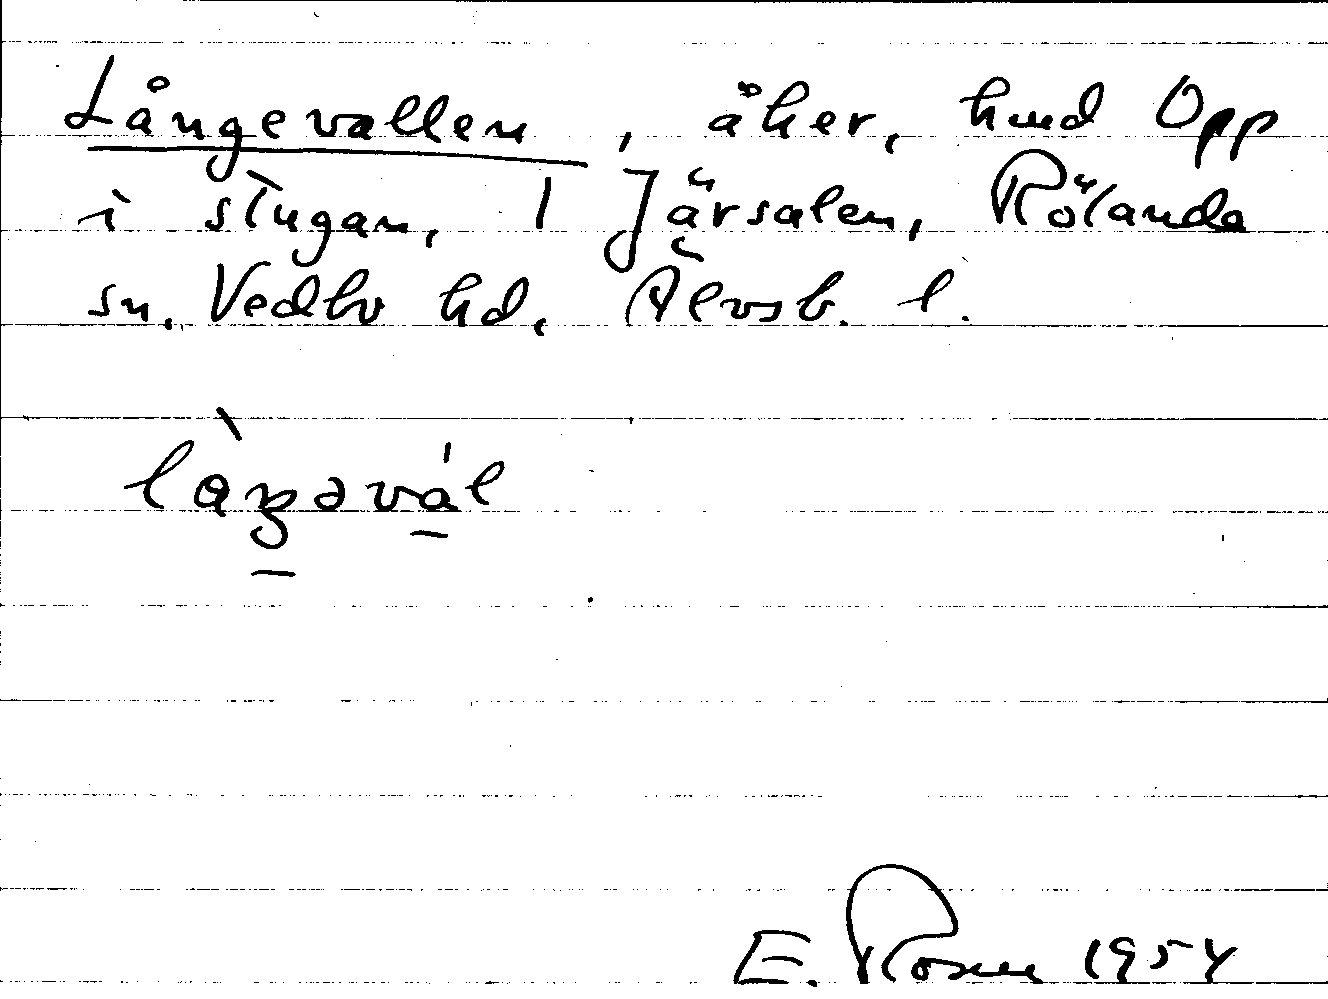 Långevallen, åker, hmd Opp
i stugan, 1 Järsalen, Rölanda
sn. Vedbo hd, Älvsb. l.
E. Rosen 1954